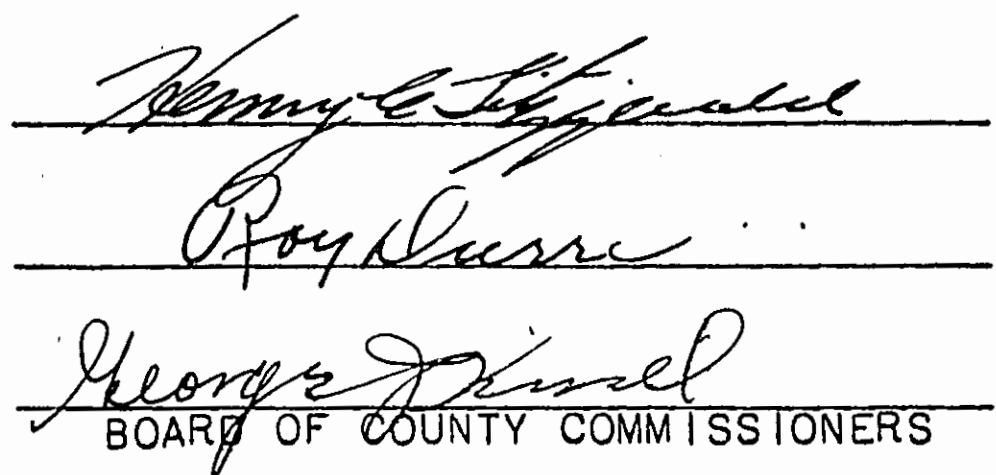 Henry C Fitzgerald
Roy Durre
George J
BOARD OF COUNTY COMMISSIONERS